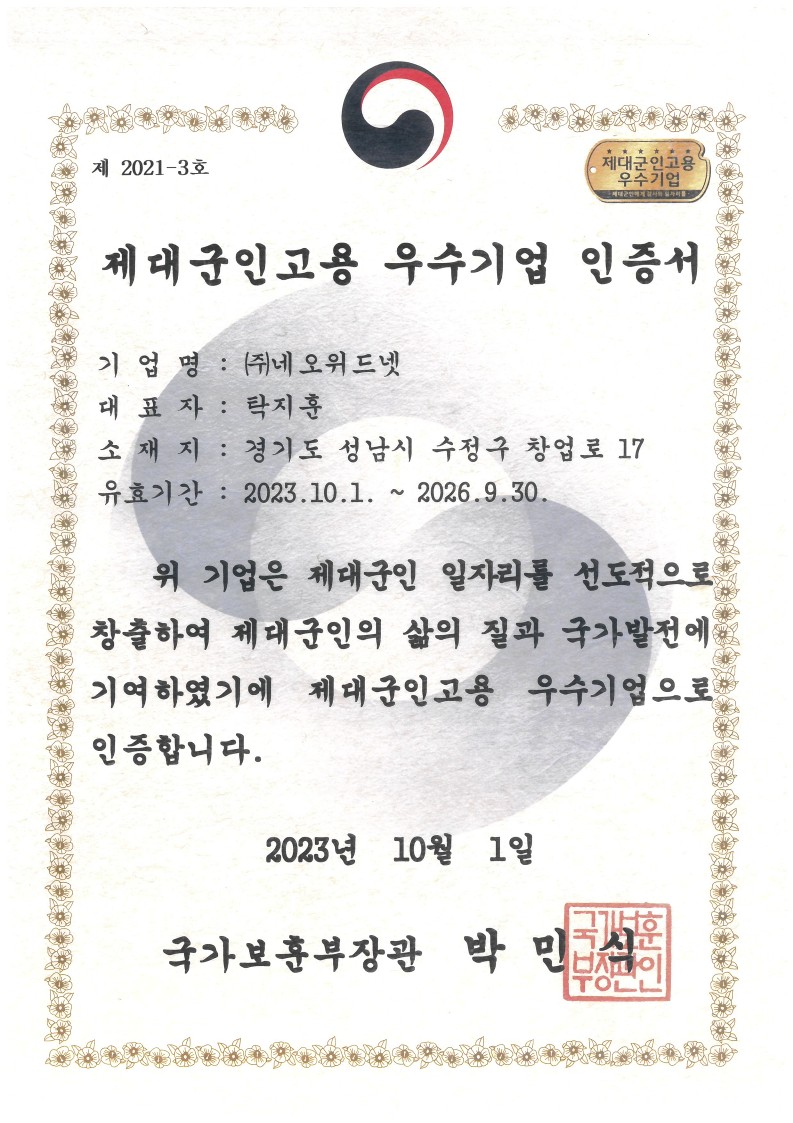 제 2021-3호
제대군인고용
우수기업
제대군인고용 우수기업 인증서
기 업 명 : ㈜네오위드넷
대 표 자 : 탁지훈
소 재 지 : 경기도 성남시 수정구 창업로 17
유효기간 : 2023.10.1. ~ 2026.9.30.
위 기업은 제대군인 일자리를 선도적으로
창출하여 제대군인의 삶의 질과 국가발전에
기여하였기에 제대군인고용 우수기업으로
인증합니다.
2023년 10월 1일
국가보훈부장관 박 민 식
국가보훈
부장관인